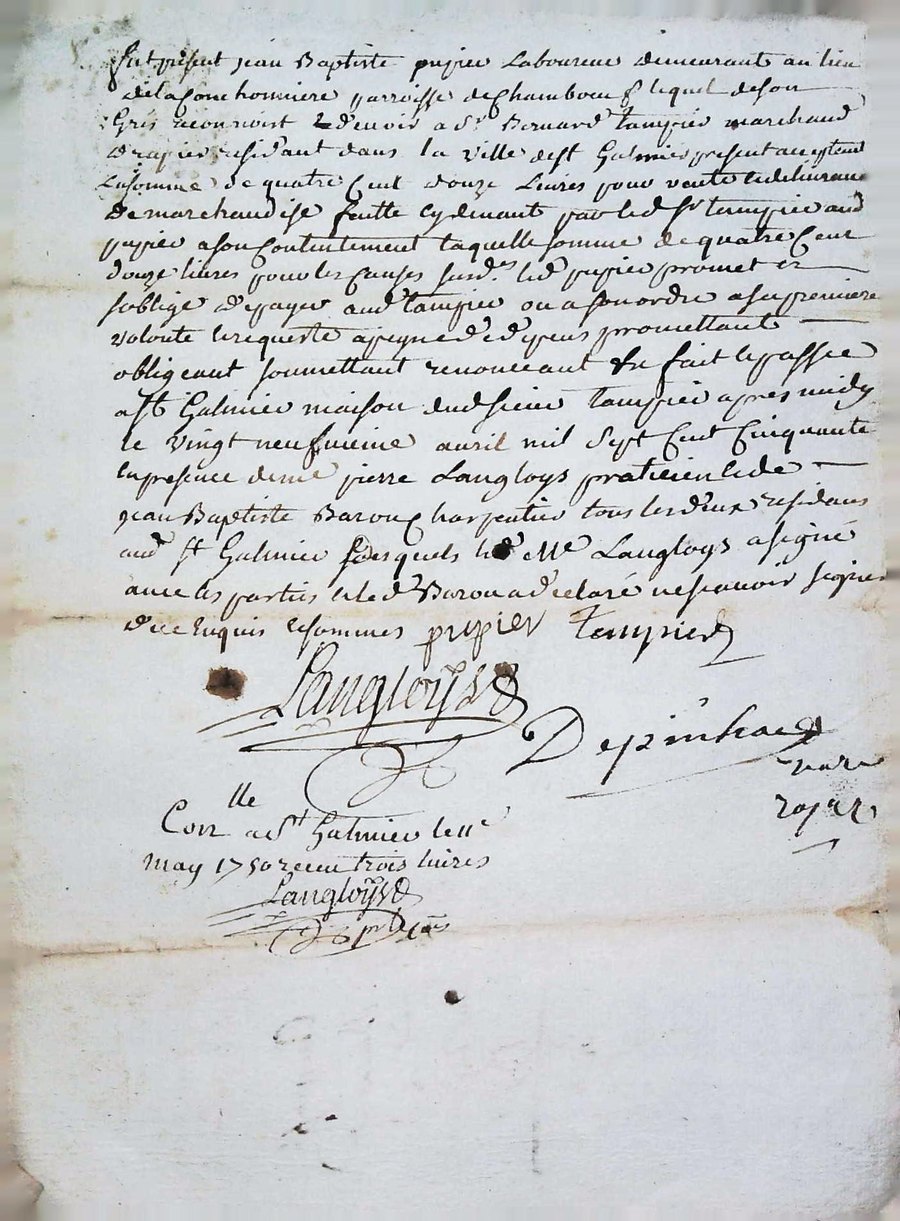 fut present jean Baptiste pupier Laboureur demeurant au lieu
de la souchonniere parroisse de Chambœuf lequel de son
Gris reconnoist & devoir a Sr Bernard tampier marchand
drapier residant dans la ville de st Galmier present acceptant
la somme de quatre Cent douze Livres pour vente & delivrance
de marchandise faitte cydevant par led sr tempier aud
pupier a son Contentement laquelle somme de quatre Cent
douze livres pour les Causes susd.s led pupier promet et
soblige de payer aud tampier ou a son ordre a sa premiere
volonte & requeste a peyne de depens promettant
obligeant soumettant renonceant &c fait & passé
a St Galmier maison dud sieur tampier apres midy
le vingt neufvieme avril mil Sept Cent Cinquante
en presence de me pierre Langloys praticien & de
jean Baptiste Barou Charpentier tous les deux residans
aud St Galmier desquels led Me Langloys a signé
avec les parties & led Barou a declaré ne scavoir signer
de ce Enquis & sommés pupier Tempier
Langloys
Depinhac
nore
royal
lle
Con a St Galmier le 11e
may 1750 receu trois livres
Langloys